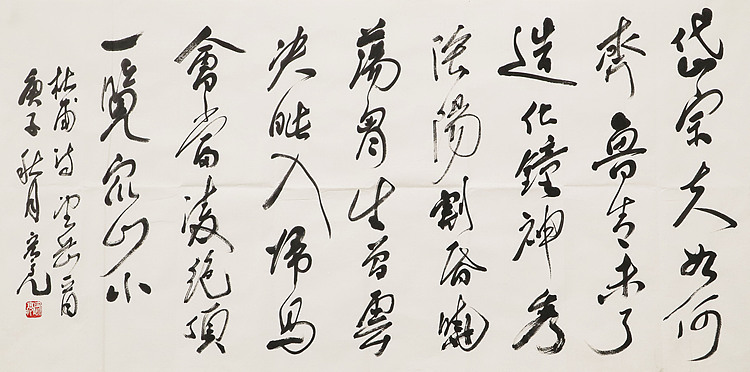 岱宗夫如何
齊魯青未了
造化鐘神秀
陰陽割昏曉
蕩胷生曾雲
决眦入歸鳥
會當凌絕頂
一覽眾山小
杜甫诗望岳一首
庚子秋月